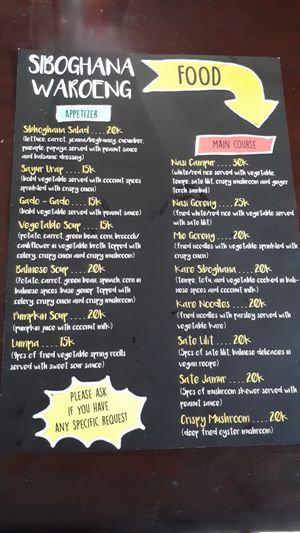 SIBOGHANA
WAROENG
FOOD
APPETIZER
Sibhoghana Salad .... 20k
(lettuce, carrot, jicama/bengkuang, cucumber,
pineaple, papaya served with peanut sauce
and balsamic dressing)
Sayur Urap .... 15k
(boild vegetable served with coconut spices
sprinkled with crispy onion)
Gado - Gado .... 15k
(boild vegetable served with peanut sauce)
Vegetable Soup .... 15k
(Potato, carrot, green bean, corn, broccoli/
cauliflower in vegetable broth topped with
celery, crispy onion and crispy mushroom)
Balinese Soup .... 20k
(Potato, carrot, green bean, spinach, corn in
balinese spices base genep, topped with
celery, crispy onion and crispy mushroom)
Pumpkin Soup .... 20k
(pumpkin juice with coconut milk)
Lumpia .... 15k
(4pcs of fried vegetable spring rolls
served with sweet sour sauce)
PLEASE ASK
IF YOU HAVE
ANY SPECIFIC REQUEST
MAIN COURSE
Nasi Campur .... 30k
(white/red rice served with vegetable,
tempe, sate lilit, crispy mushroom and ginger
torch sambal)
Nasi Goreng .... 25k
(fried white/red rice with vegetable served
with sate lilit)
Mie Goreng .... 20k
(fried noodles with vegetable sprinkled with
crispy onion)
Kare Siboghana .... 20k
(tempe, tofu, and vegetable cooked in bali-
nese spices and coconut milk)
Kare Noodles .... 20k
(fried noodles with parsley served with
vegetable kare)
Sate Lilit .... 20k
(5pcs of sate lilit, balinese delicacies in
vegan recipe)
Sate Jamur .... 20k
(5pcs of mushroom skewer served with
peanut sauce)
Crispy Mushroom .... 20k
(deep fried oyster mushroom)